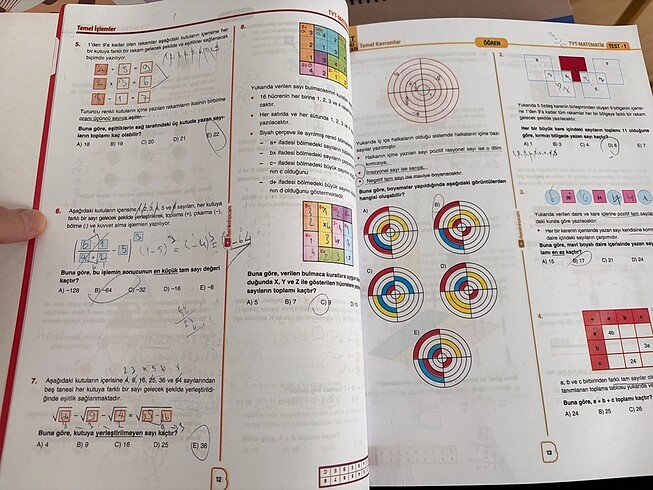 Temel İşlemler
5. 1'den 9'a kadar olan rakamlar aşağıdaki kutuların içerisine her
bir kutuya farklı bir rakam gelecek şekilde ve eşitlikler sağlanacak
biçimde yazılıyor.
Turuncu renkli kutuların içine yazılan rakamların ikisinin birbirine
oranı üçüncü sayıya eşittir.
Buna göre, eşitliklerin sağ tarafındaki üç kutuda yazan sayı-
ların toplamı kaç olabilir?
A) 18 B) 19 C) 20 D) 21 E) 22
6.
farklı bir sayı gelecek şekilde yerleştirilerek, toplama (+), çıkarma (–),
bölme (÷) ve kuvvet alma işlemleri yapılıyor.
(1-5)³ = (-4)³ = -64
Buna göre, bu işlemin sonucunun en küçük tam sayı değeri
kaçtır?
A) –128 B) –64 C) –32 D) –16 E) –8
7. Aşağıdaki kutuların içerisine 4, 9, 16, 25, 36 ve 64 sayılarından
beş tanesi her kutuya farklı bir sayı gelecek şekilde yerleştirildi-
ğinde eşitlik sağlanmaktadır.
Buna göre, kutuya yerleştirilmeyen sayı kaçtır?
A) 4 B) 9 C) 16 D) 25 E) 36
12
TYT-MATE
8.
Yukarıda verilen sayı bulmacasının
• 16 hücrenin her birine 1, 2, 3 ve 4
caktır.
• Her satırda ve her sütunda 1, 2, 3
yazılacaktır.
• Siyah çerçeve ile ayrılmış renkli
– a+ ifadesi bölmedeki sayıların
– bx ifadesi bölmedeki sayıların
– c– ifadesi bölmedeki büyük
nın c olduğunu
– d÷ ifadesi bölmedeki büyük
nın d olduğunu göstermektedir.
Buna göre, verilen bulmaca kurallara uygun
duğunda X, Y ve Z ile gösterilen hücrelere
sayıların toplamı kaçtır?
A) 5 B) 7 C) 9 D) 10
Temel Kavramlar
ÖĞREN
TYT-MATEMATİK TEST - 1
Yukarıda iç içe halkaların olduğu sistemde halkaların içine bazı
sayılar yazılmıştır.
• Halkanın içine yazılan sayı pozitif rasyonel sayı ise o dilim
kırmızıya,
• İrrasyonel sayı ise sarıya,
• Negatif tam sayı ise maviye boyanacaktır.
Buna göre, boyamalar yapıldığında aşağıdaki görüntülerden
hangisi oluşabilir?
A) B)
C) D)
E)
2.
Yukarıda 5 özdeş karenin birleşiminden oluşan 9 bölgenin içerisi-
ne 1'den 9'a kadar tüm rakamlar her bir bölgeye farklı bir rakam
gelecek şekilde yazılacaktır.
Her bir büyük kare içindeki sayıların toplamı 11 olduğuna
göre, kırmızı bölgeye yazan sayı kaçtır?
A) 1 B) 3 C) 4 D) 6 E) 7
3.
Yukarıda verilen daire ve kare içlerine pozitif tam sayılar
deki kurala göre yazılıyor.
• Her bir karenin içerisinde yazan sayı kendisine komşu
daire içindeki sayıların çarpımıdır.
Buna göre, mavi boyalı daire içerisinde yazan say-
lamı en az kaçtır?
A) 15 B) 17 C) 21 D) 24
4.
a b c
4b
24
3a
a, b ve c birbirinden farklı tam sayılar
tanımlanan toplama tablosu yukarıda
Buna göre, a + b + c toplamı kaçtır?
A) 24 B) 25 C) 26
13